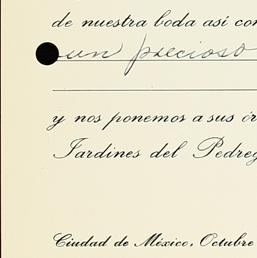 de nuestra boda así con
un precioso
y nos ponemos a sus ór
Jardines del Pedreg
Ciudad de México, Octubre